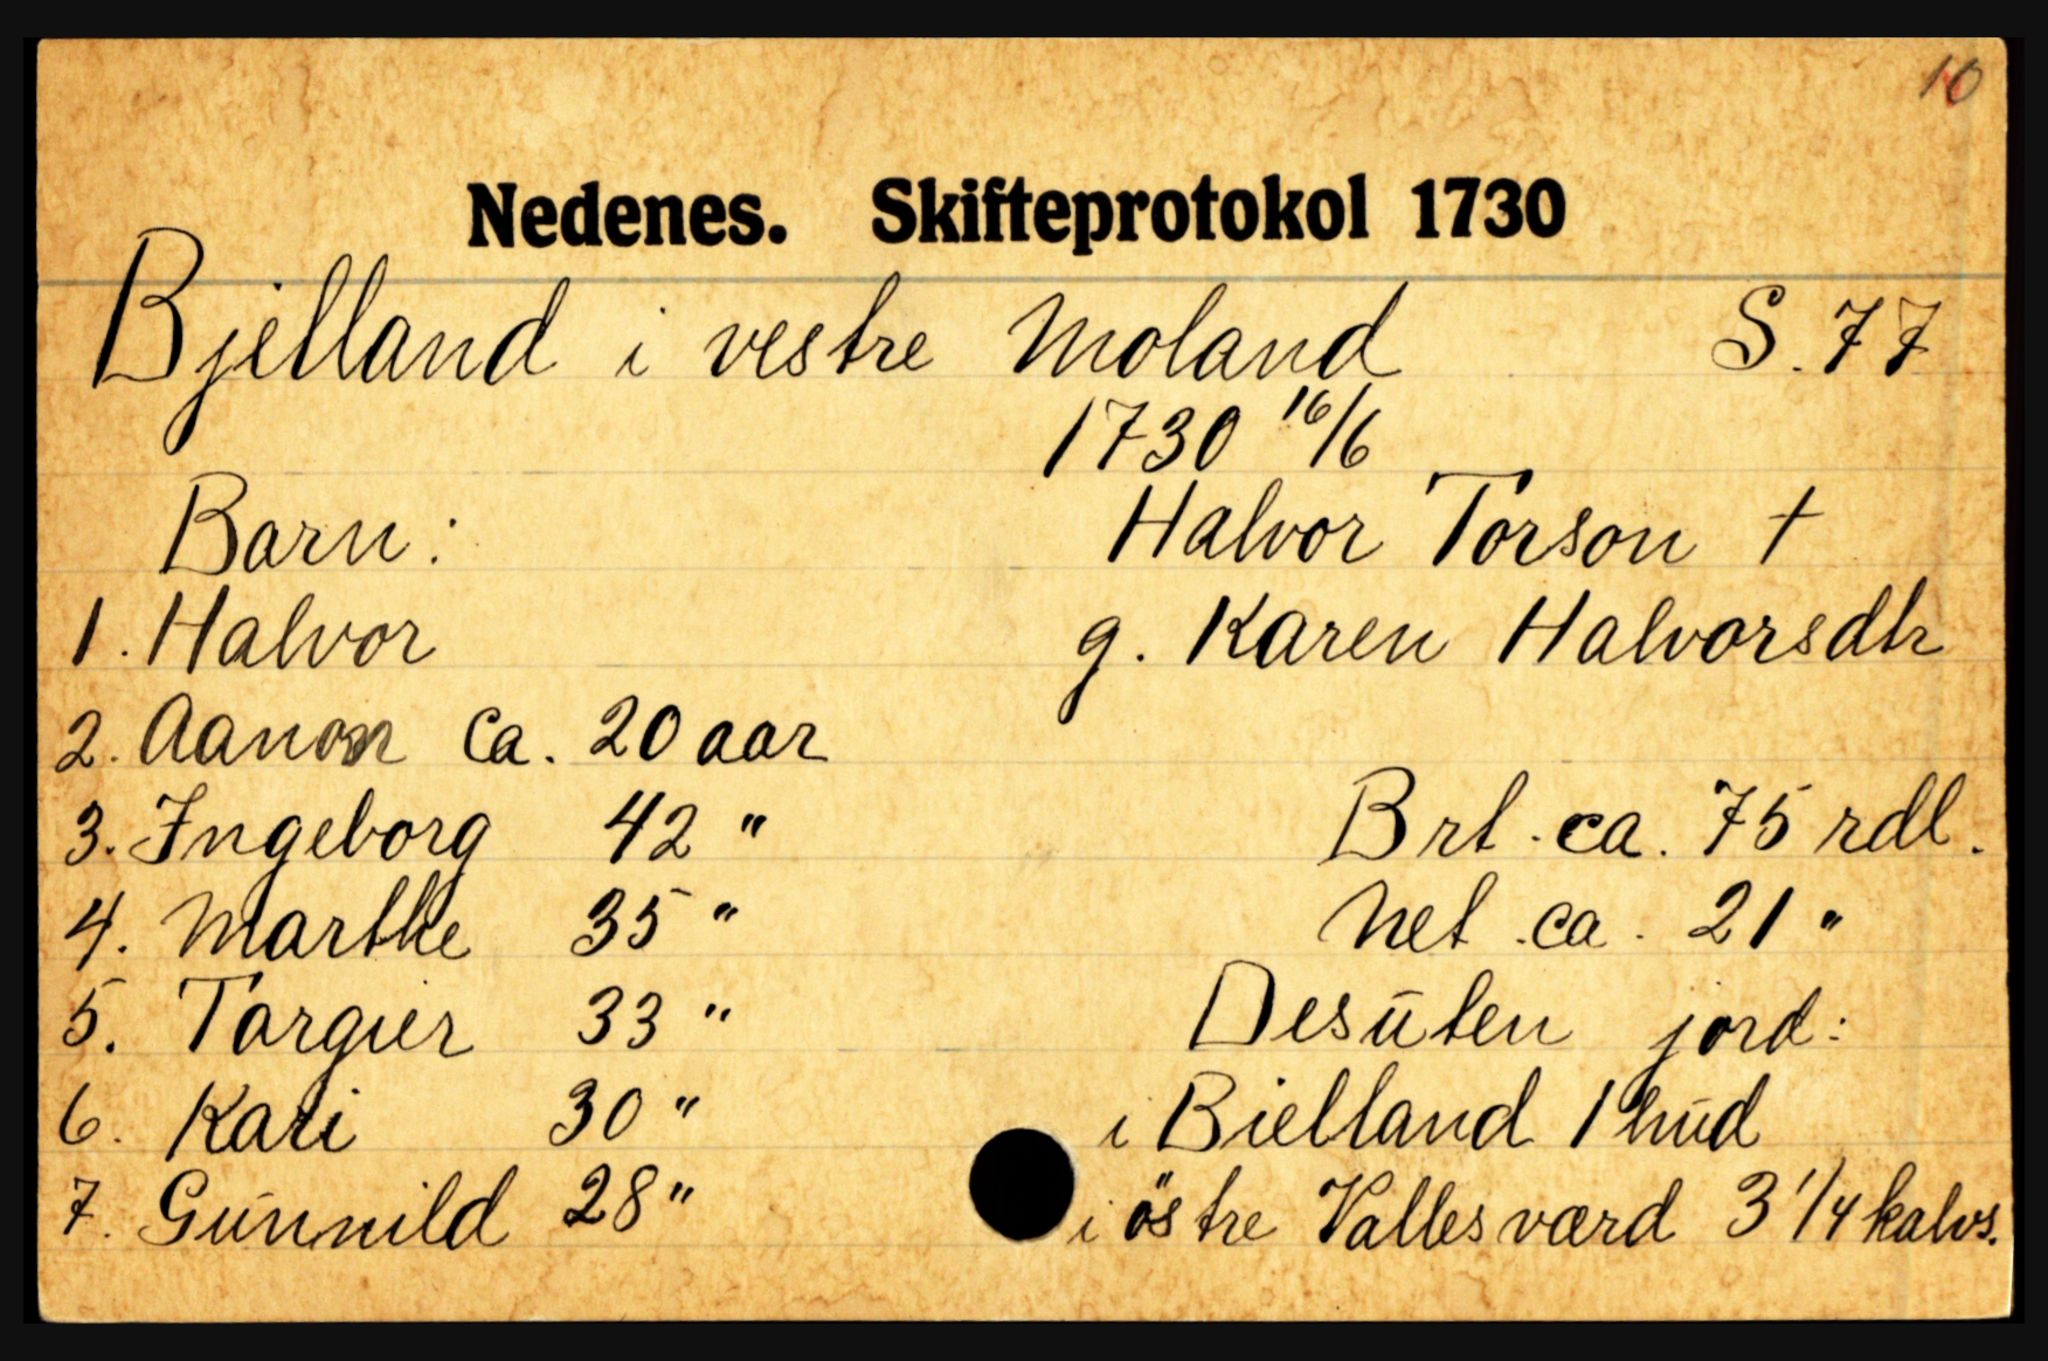 10
Nedenes. Skifteprotokol 1730
Bjelland i vestre Moland S. 77
1730 16/6
Barn: Halvor Torson †
1. Halvor g. Karen Halvorsdtr
2. Aanon ca. 20 aar
3. Ingeborg 42 " Brt. ca. 75 rdl.
4. Marthe 35 " Net. ca. 21 "
5. Torgier 33 " Desūten jord:
6. Kari 30 " i Bielland 1 hūd
7. Gūnnild 28 " i östre Vallesværd 3 1/4 kalvs.